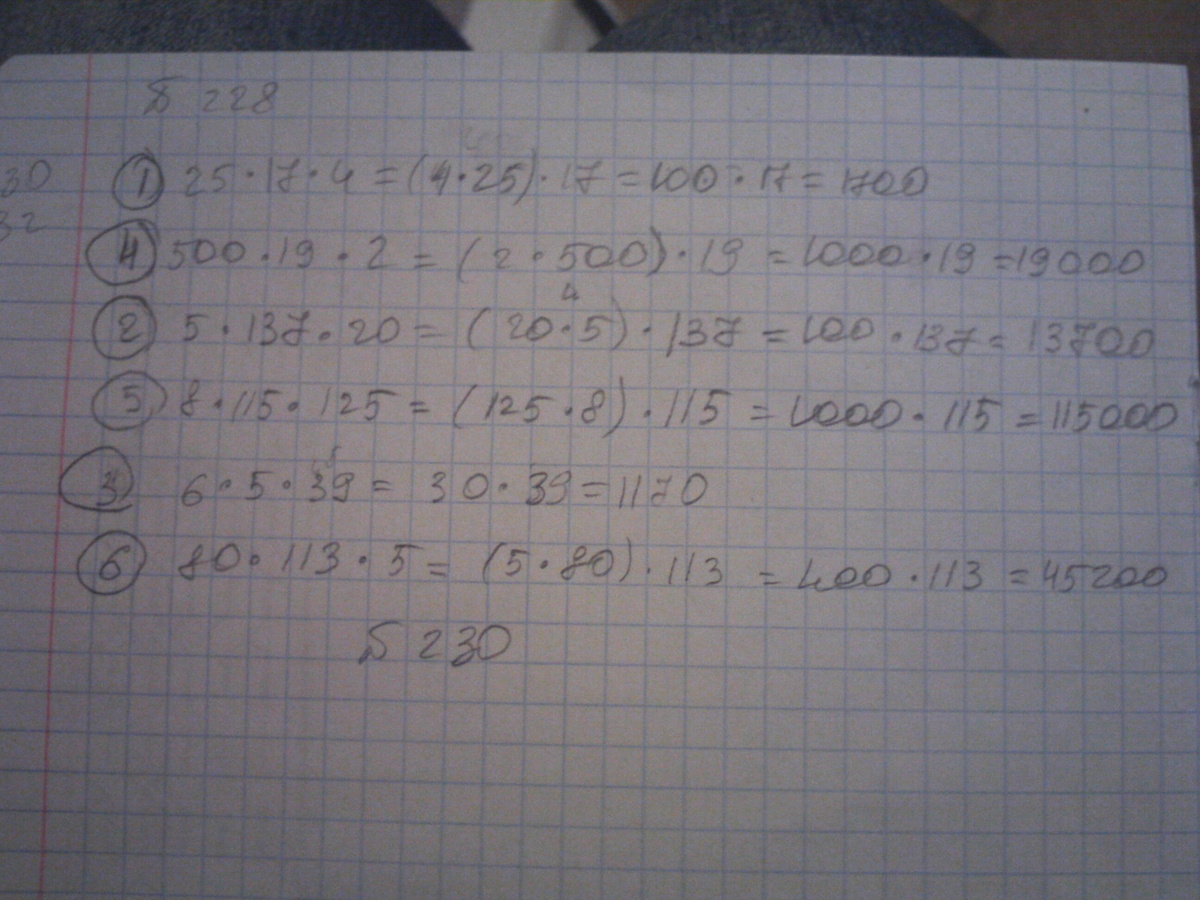 Б 228
30
① 25·17·4 = (4·25)·17 = 100·17 = 1700
32
④ 500·19·2 = (2·500)·19 = 1000·19 = 19000
4
② 5·137·20 = (20·5)·137 = 100·137 = 13700
⑤ 8·115·125 = (125·8)·115 = 1000·115 = 115000
③ 6·5·39 = 30·39 = 1170
⑥ 80·113·5 = (5·80)·113 = 400·113 = 45200
Б 230